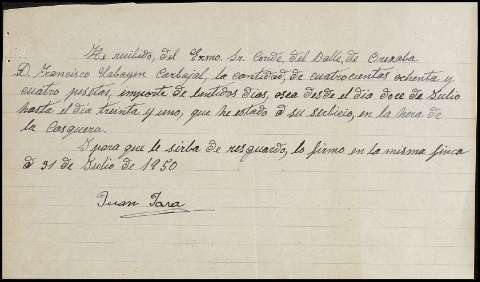 He recibido, del Exmo. Sr. Conde, del Valle, de Orizaba
D. Francisco Cabayen Carbajal, la cantidad, de cuatrocientas ochenta y
cuatro pesetas, importe de bentidos dias, osea desde el dia doce de Julio
hasta el dia treinta y uno, que he estado á su serbicio, en la hera de
la Casquera.
I para que le sirba de resguardo, lo firmo en la misma finca
á 31 de Julio de 1850
Juan Jara